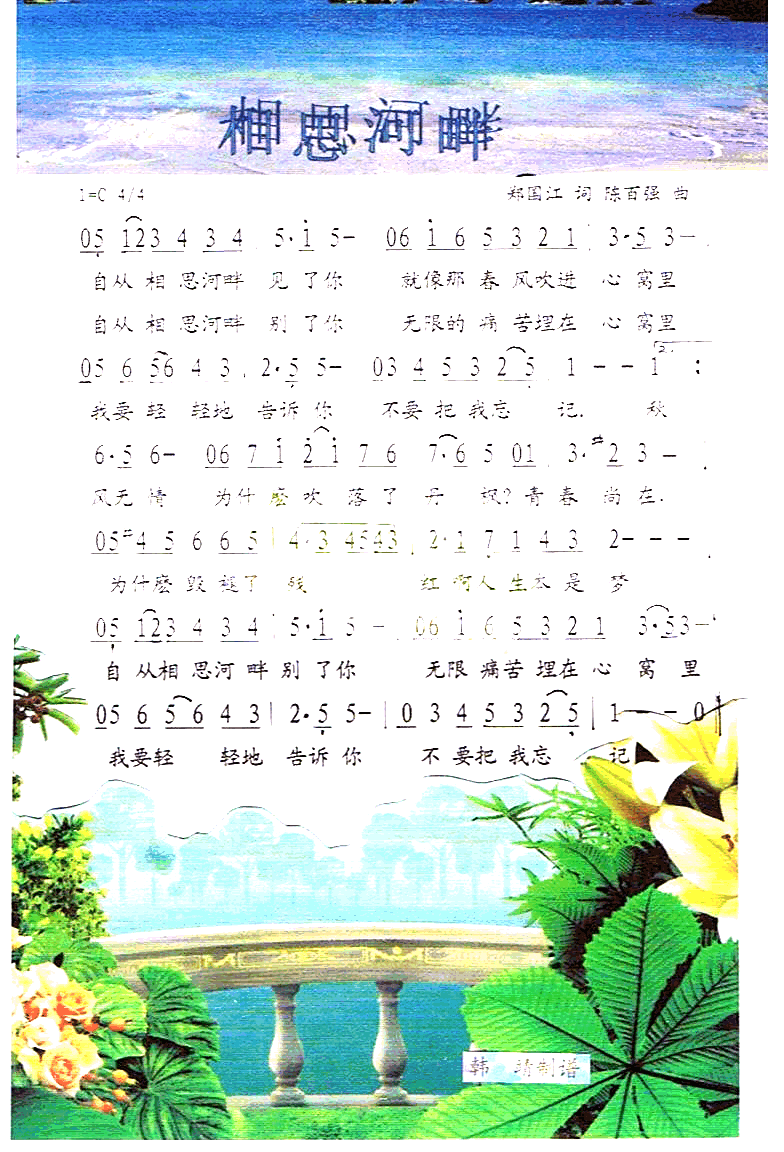 相思河畔
1=C 4/4 郑国江 词 陈百强 曲
05 123 4 3 4 5·i 5- 06 i 6 5 3 2 1 3·5 3-
自从 相 思河畔 见 了你 就像那 春 风吹进 心 窝里
自从 相 思河畔 别 了你 无限的 痛 苦埋在 心 窝里
05 6 56 4 3 2·5 5- 03 4 5 3 2 5 1 - - 1 :
我要 轻 轻地 告诉 你 不要 把 我忘 记. 秋
6·5 6- 06 7 i 2 i 7 6 7·6 5 01 3·#2 3 -
风无 情 为什麽 吹 落 了 丹 枫? 青 春 尚 在.
05 #4 5 6 6 5 | 4·3 4543 2·1 7 1 4 3 2- - -
为什麽 毁 褪了 残 红 啊人 生本 是 梦
05 123 4 3 4 5·i 5 - 06 i 6 5 3 2 1 3·53-
自 从相 思河 畔 别 了你 无限 痛苦 埋在 心 窝 里
05 6 5 6 4 3 | 2·5 5- | 0 3 4 5 3 2 5 | 1 - - 0
我要轻 轻地 告诉 你 不 要把 我忘 记
韩 靖制谱